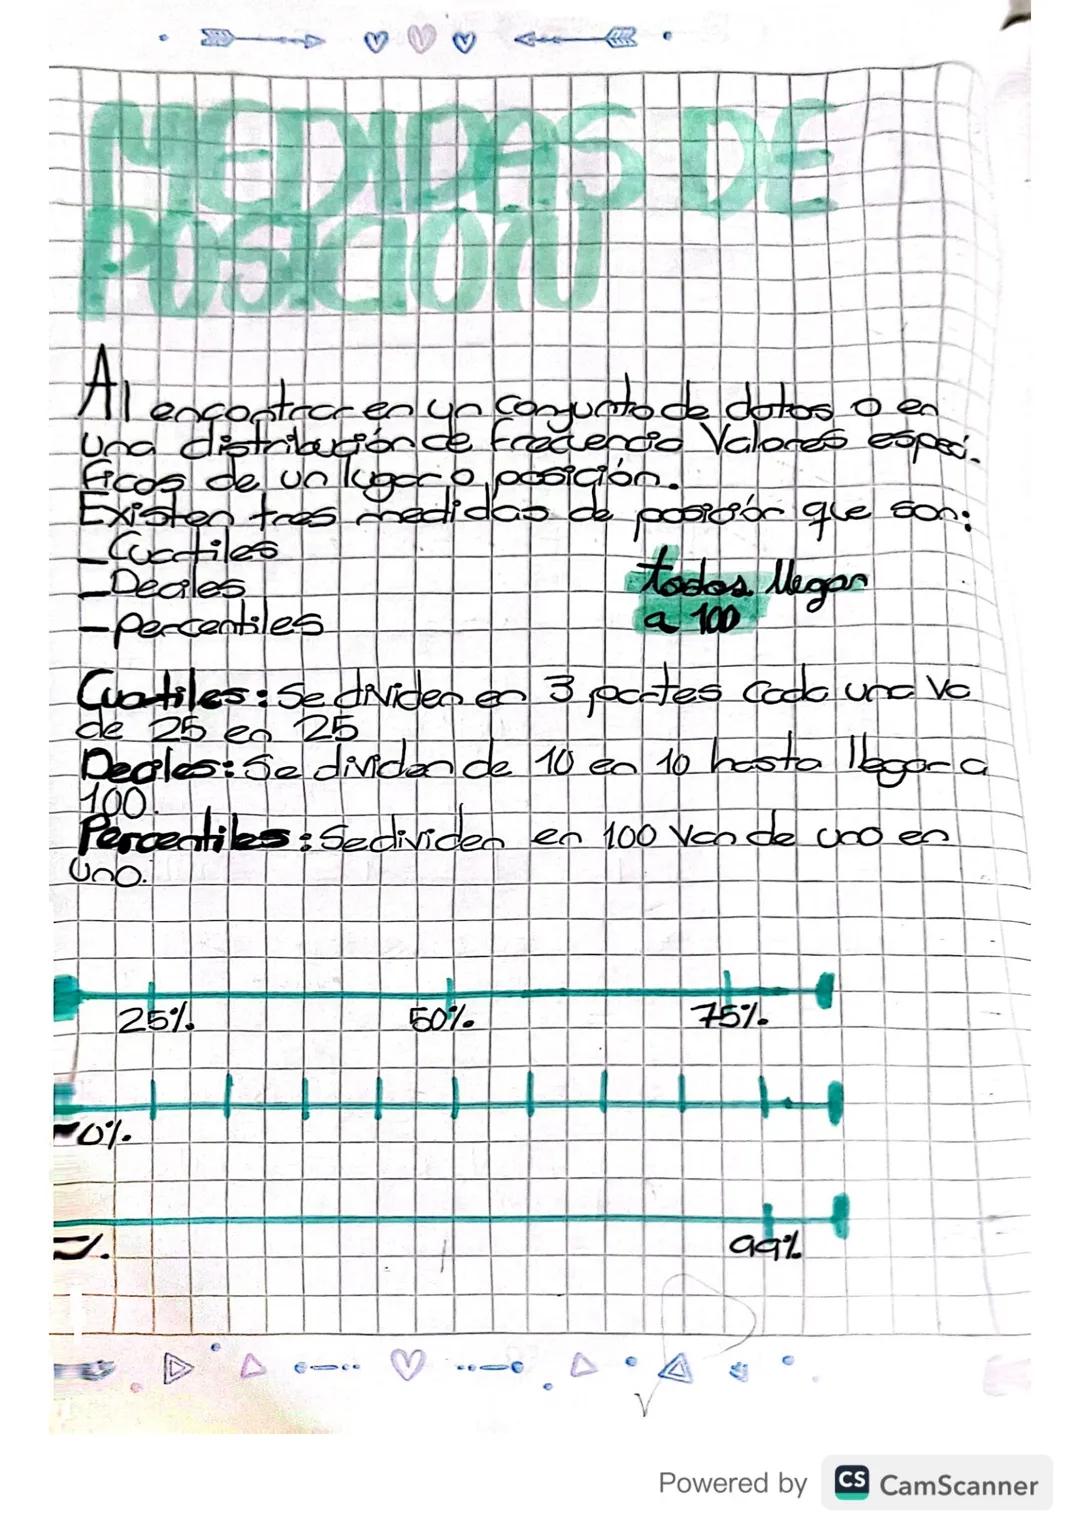 MEDIDAS DE
POSICION
Al encontrar en un conjunto de datos o en
una distribución de frecuencia Valores especí-
ficos de un lugar o posición.
Existen tres medidas de posición que son:
- Cuartiles
- Deciles
- percentiles
todos llegan
a 100
Cuartiles: Se dividen en 3 partes cada una va
de 25 en 25
Deciles: Se dividen de 10 en 10 hasta llegar a
100.
Percentiles: Se dividen en 100 Van de uno en
uno.
25% 50% 75%
0%
99%
Powered by CS CamScanner